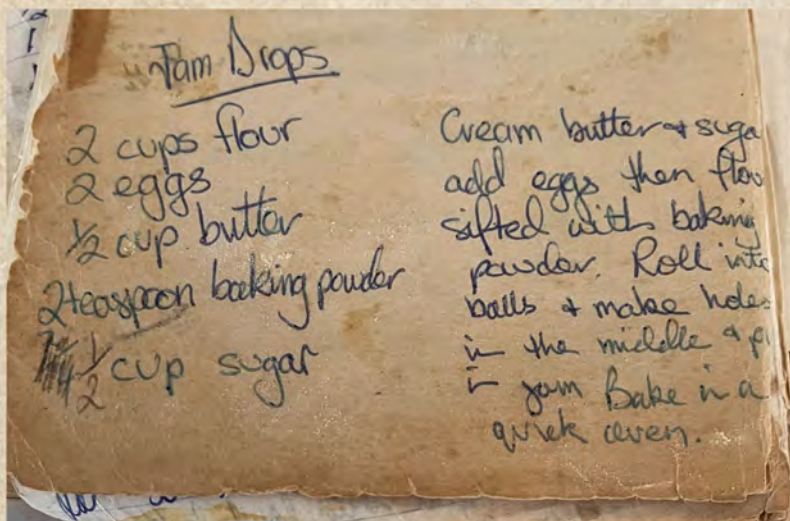 Jam Drops
2 cups flour
2 eggs
1/2 cup butter
2 teaspoon baking powder
1/2 cup sugar
Cream butter & suga
add eggs then flou
sifted with baking
powder. Roll into
balls & make holes
in the middle & p
in jam Bake in a
quick oven.